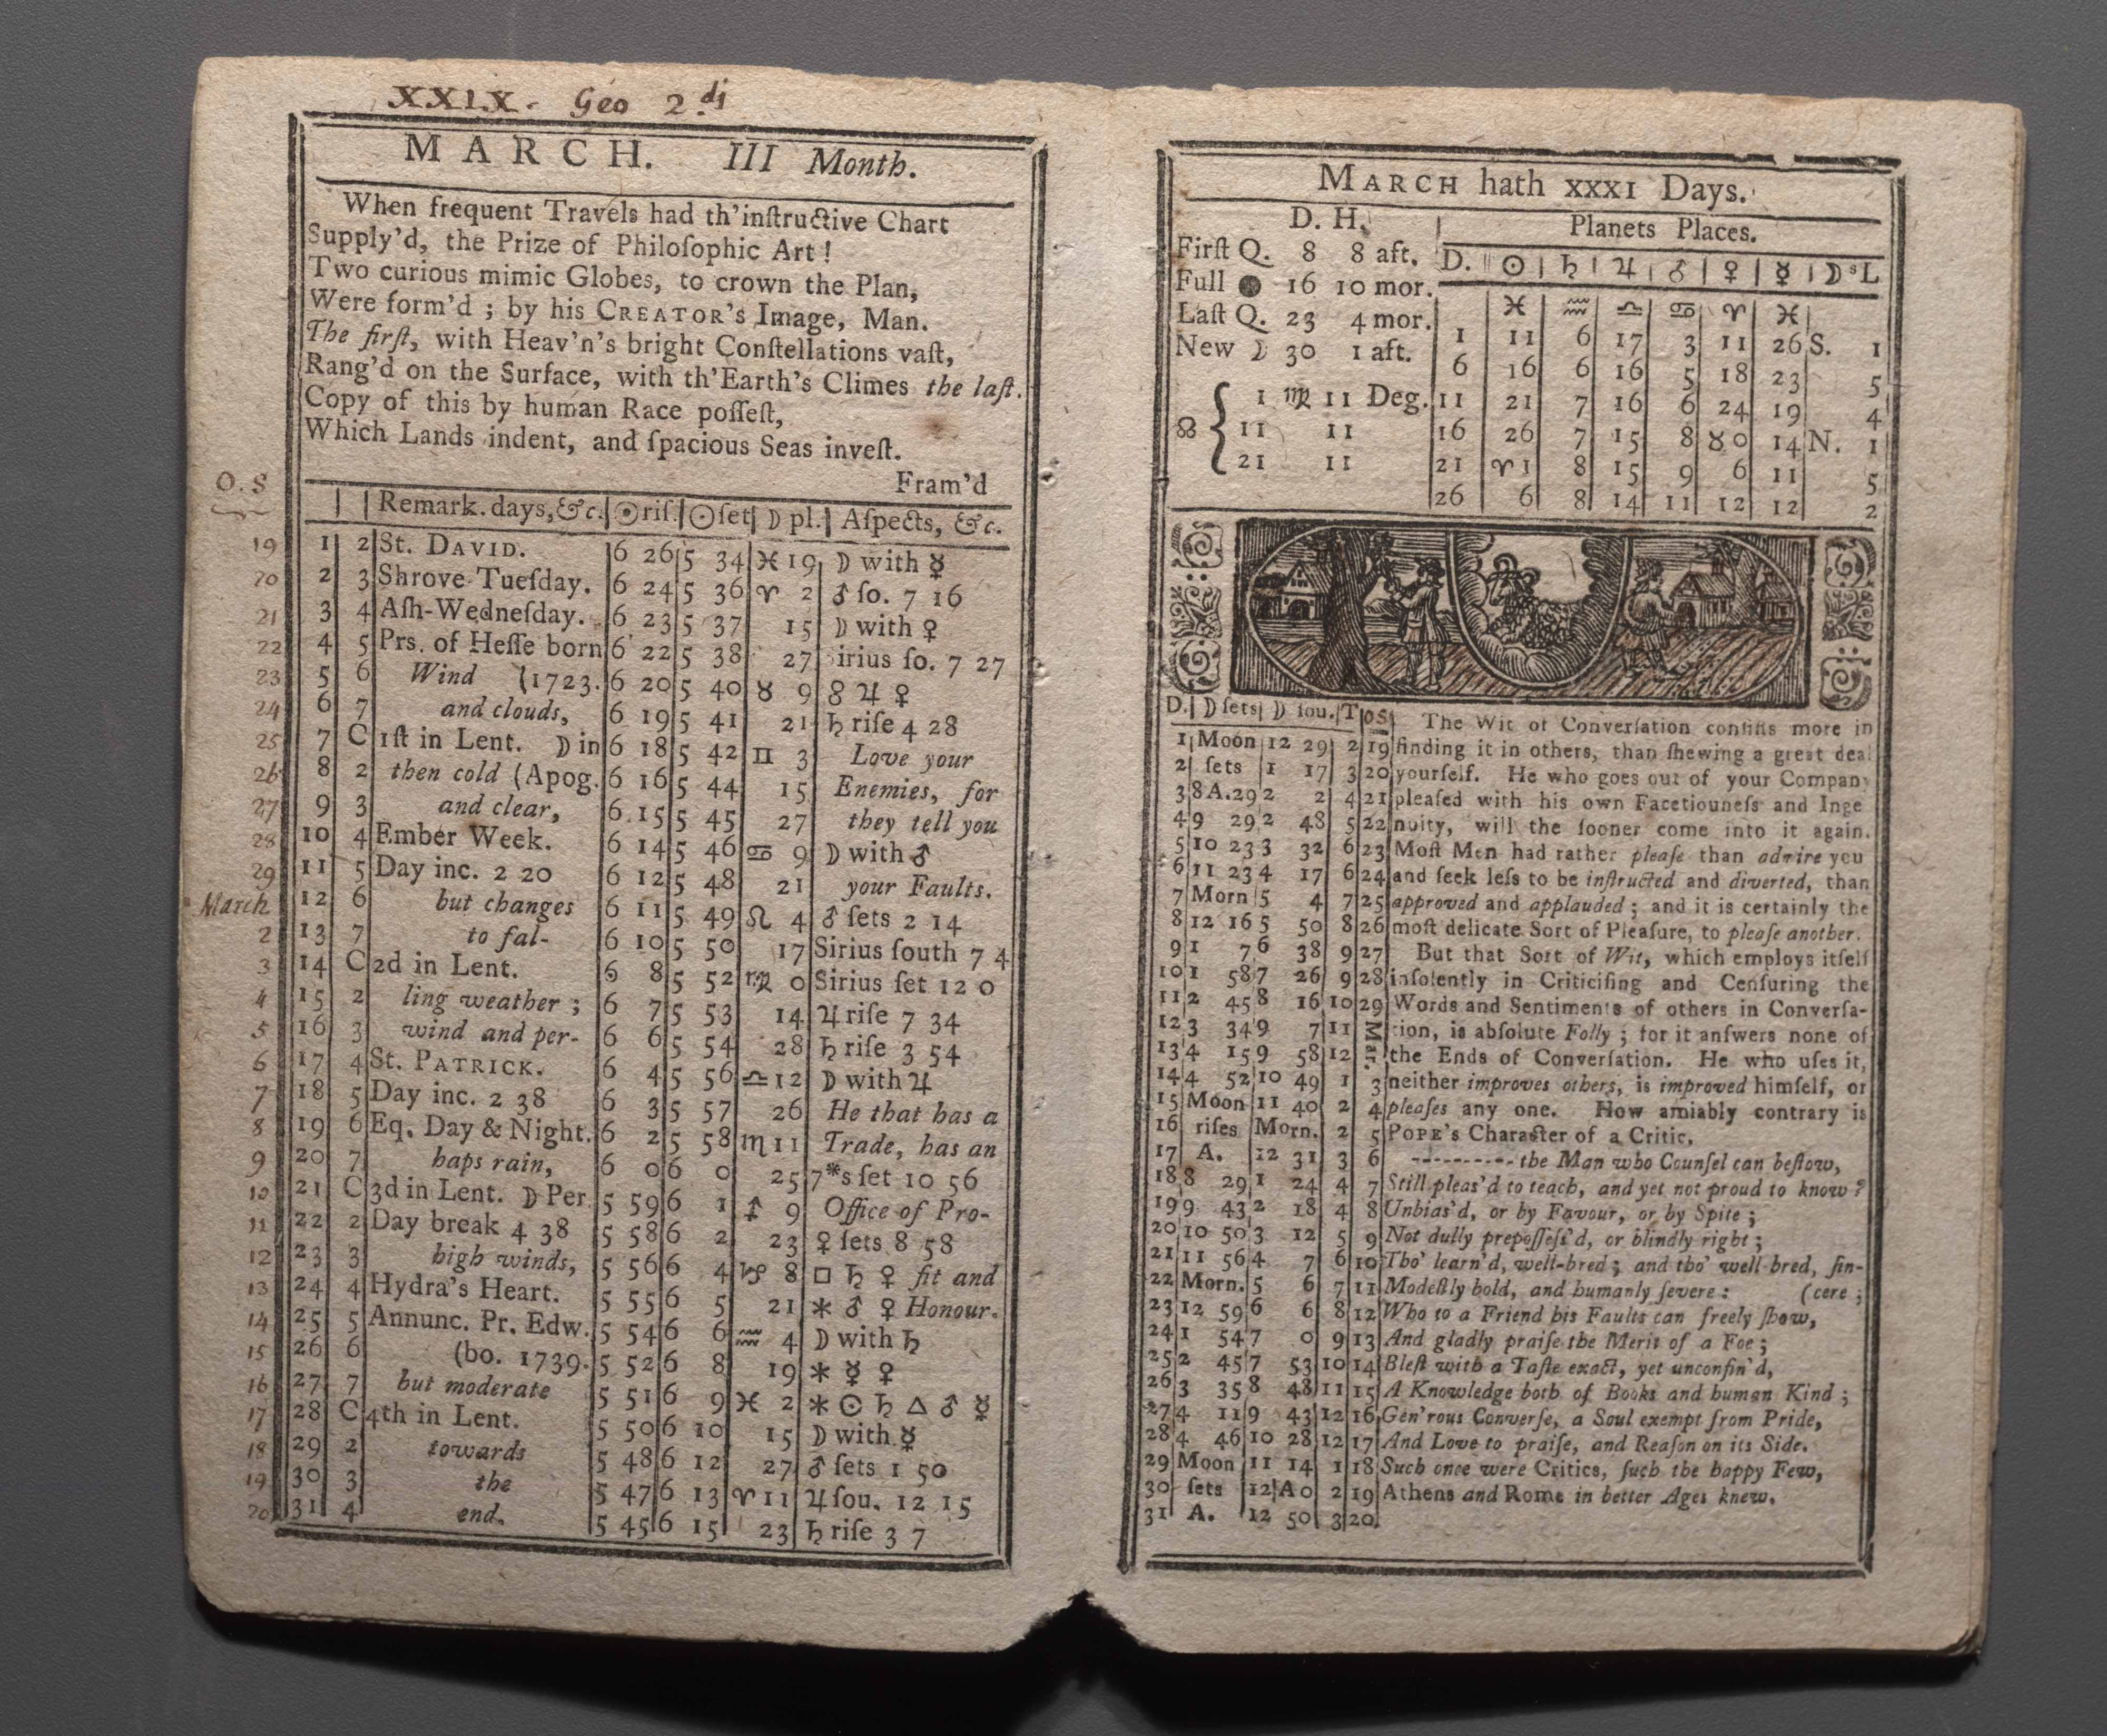 XXIX. Geo 2.di
MARCH. III Month.
When frequent Travels had th'inſtructive Chart
Supply'd, the Prize of Philoſophic Art!
Two curious mimic Globes, to crown the Plan,
Were form'd; by his CREATOR's Image, Man.
The firſt, with Heav'n's bright Conſtellations vaſt,
Rang'd on the Surface, with th'Earth's Climes the laſt.
Copy of this by human Race poſſeſt,
Which Lands indent, and ſpacious Seas inveſt.
Fram'd
O.S
Remark. days, &c. ☉riſ. ☉ſet ☽ pl. Aſpects, &c.
19 1 2 St. DAVID. 6 26 5 34 ♓ 19 ☽ with ☿
20 2 3 Shrove Tueſday. 6 24 5 36 ♈ 2 ♂ ſo. 7 16
21 3 4 Aſh-Wedneſday. 6 23 5 37 15 ☽ with ♀
22 4 5 Prs. of Heſſe born 6 22 5 38 27 irius ſo. 7 27
23 5 6 Wind (1723. 6 20 5 40 ♉ 9 ☍ ♃ ♀
24 6 7 and clouds, 6 19 5 41 21 ♄ riſe 4 28
25 7 C 1ſt in Lent. ☽ in 6 18 5 42 ♊ 3 Love your
26 8 2 then cold (Apog. 6 16 5 44 15 Enemies, for
27 9 3 and clear, 6 15 5 45 27 they tell you
28 10 4 Ember Week. 6 14 5 46 ♋ 9 ☽ with ♂
29 11 5 Day inc. 2 20 6 12 5 48 21 your Faults.
March 12 6 but changes 6 11 5 49 ♌ 4 ♂ ſets 2 14
2 13 7 to fal- 6 10 5 50 17 Sirius ſouth 7 4
3 14 C 2d in Lent. 6 8 5 52 ♍ 0 Sirius ſet 12 0
4 15 2 ling weather; 6 7 5 53 14 ♃ riſe 7 34
5 16 3 wind and per- 6 6 5 54 28 ♄ riſe 3 54
6 17 4 St. PATRICK. 6 4 5 56 ♎ 12 ☽ with ♃
7 18 5 Day inc. 2 38 6 3 5 57 26 He that has a
8 19 6 Eq. Day & Night. 6 2 5 58 ♏ 11 Trade, has an
9 20 7 haps rain, 6 0 6 0 25 7*s ſet 10 56
10 21 C 3d in Lent. ☽ Per. 5 59 6 1 ♐ 9 Office of Pro-
11 22 2 Day break 4 38 5 58 6 2 23 ♀ ſets 8 58
12 23 3 high winds, 5 56 6 4 ♑ 8 □ ♄ ♀ fit and
13 24 4 Hydra's Heart. 5 55 6 5 21 ✱ ♂ ♀ Honour.
14 25 5 Annunc. Pr. Edw. 5 54 6 6 ♒ 4 ☽ with ♄
15 26 6 (bo. 1739. 5 52 6 8 19 ✱ ☿ ♀
16 27 7 but moderate 5 51 6 9 ♓ 2 ✱ ☉ ♄ △ ♂ ☿
17 28 C 4th in Lent. 5 50 6 10 15 ☽ with ☿
18 29 2 towards 5 48 6 12 27 ♂ ſets 1 50
19 30 3 the 5 47 6 13 ♈ 11 ♃ ſou. 12 15
20 31 4 end. 5 45 6 15 23 ♄ riſe 3 7
MARCH hath XXXI Days.
D. H.
Firſt Q. 8 8 aft.
Full ● 16 10 mor.
Laſt Q. 23 4 mor.
New ☽ 30 1 aft.
☊ { 1 ♍ 11 Deg.
11 11
21 11
Planets Places.
D. ☉ ♄ ♃ ♂ ♀ ☿ ☽sL
♓ ♒ ♎ ♋ ♈ ♓
1 11 6 17 3 11 26 S. 1
6 16 6 16 5 18 23 5
11 21 7 16 6 24 19 4
16 26 7 15 8 ♉0 14 N. 1
21 ♈1 8 15 9 6 11 5
26 6 8 14 11 12 12 2
D. ☽ ſets ☽ ſou. T OS
1 Moon 12 29 2 19
2 ſets 1 17 3 20
3 8A.29 2 2 4 21
4 9 29 2 48 5 22
5 10 23 3 32 6 23
6 11 23 4 17 6 24
7 Morn 5 4 7 25
8 12 16 5 50 8 26
9 1 7 6 38 9 27
10 1 58 7 26 9 28
11 2 45 8 16 10 29
12 3 34 9 7 11 Mar.
13 4 15 9 58 12
14 4 52 10 49 1 3
15 Moon 11 40 2 4
16 riſes Morn. 2 5
17 A. 12 31 3 6
18 8 29 1 24 4 7
19 9 43 2 18 4 8
20 10 50 3 12 5 9
21 11 56 4 7 6 10
22 Morn. 5 6 7 11
23 12 59 6 6 8 12
24 1 54 7 0 9 13
25 2 45 7 53 10 14
26 3 35 8 48 11 15
27 4 11 9 43 12 16
28 4 46 10 28 12 17
29 Moon 11 14 1 18
30 ſets 12A0 2 19
31 A. 12 50 3 20
The Wit of Converſation conſiſts more in
finding it in others, than ſhewing a great deal
yourſelf. He who goes out of your Company
pleaſed with his own Facetiouneſs and Inge
nuity, will the ſooner come into it again.
Moſt Men had rather pleaſe than admire you
and ſeek leſs to be inſtructed and diverted, than
approved and applauded; and it is certainly the
moſt delicate Sort of Pleaſure, to pleaſe another.
But that Sort of Wit, which employs itſelf
inſolently in Criticiſing and Cenſuring the
Words and Sentiments of others in Converſa-
tion, is abſolute Folly; for it anſwers none of
the Ends of Converſation. He who uſes it,
neither improves others, is improved himſelf, or
pleaſes any one. How amiably contrary is
POPE's Character of a Critic,
---------- the Man who Counſel can beſtow,
Still pleas'd to teach, and yet not proud to know?
Unbias'd, or by Favour, or by Spite;
Not dully prepoſſeſs'd, or blindly right;
Tho' learn'd, well-bred; and tho' well bred, ſin-
Modeſtly bold, and humanly ſevere: (cere;
Who to a Friend his Faults can freely ſhow,
And gladly praiſe the Merit of a Foe;
Bleſt with a Taſte exact, yet unconfin'd,
A Knowledge both of Books and human Kind;
Gen'rous Converſe, a Soul exempt from Pride,
And Love to praiſe, and Reaſon on its Side.
Such once were Critics, ſuch the happy Few,
Athens and Rome in better Ages knew.